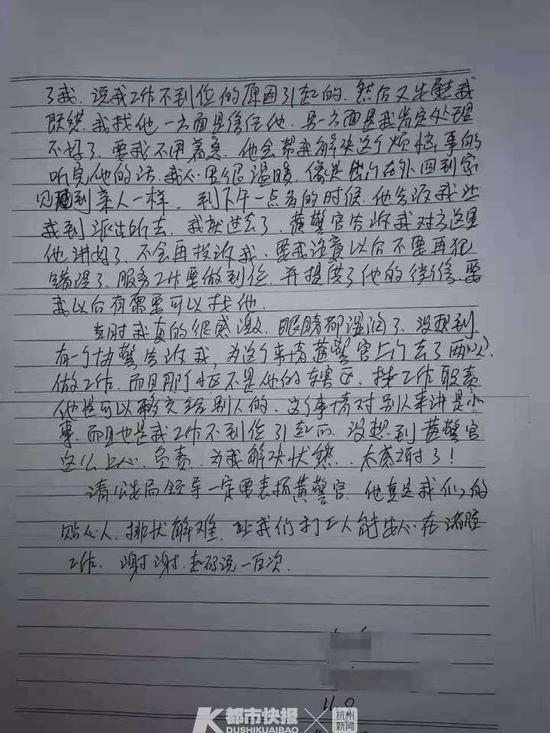 了我. 说我工作不到位的原因引起的. 然后又安慰我
既然我找他一方面是信任他. 另一方面是我肯定处理
不好了. 要我不用着急. 他会帮我解决这个烦恼事的
听完他的话. 我心里很温暖. 像是在外回到家
见到亲人一样. 到下午一点多的时候. 他告诉我让
我到派出所去. 我就过去了. 黄警官告诉我对方这里
他讲好了. 不会再投诉我. 要我注意以后不要再犯
错误了. 服务工作要做到位. 并提供了他的微信. 要
我以后有需要可以找他.
当时我真的很感激. 眼睛都湿润了. 没想到
有一个协警告诉我, 为这个事情黄警官上门去了两次
做工作. 而且那个小区不是他的辖区. 按工作职责
他是可以移交给别人的. 这个事情对别人来讲是小
事. 而且也是我工作不到位引起的. 没想到黄警官
这么上心. 负责. 为我解决忧愁. 太感谢了!
请公安局领导一定要表扬黄警官. 他真是我们的
贴心人. 排忧解难. 让我们打工人能安心在诸暨
工作. 谢谢. 重要的话说一百次.
都市快报
DUSHIKUAIBAO
×
杭州
新闻